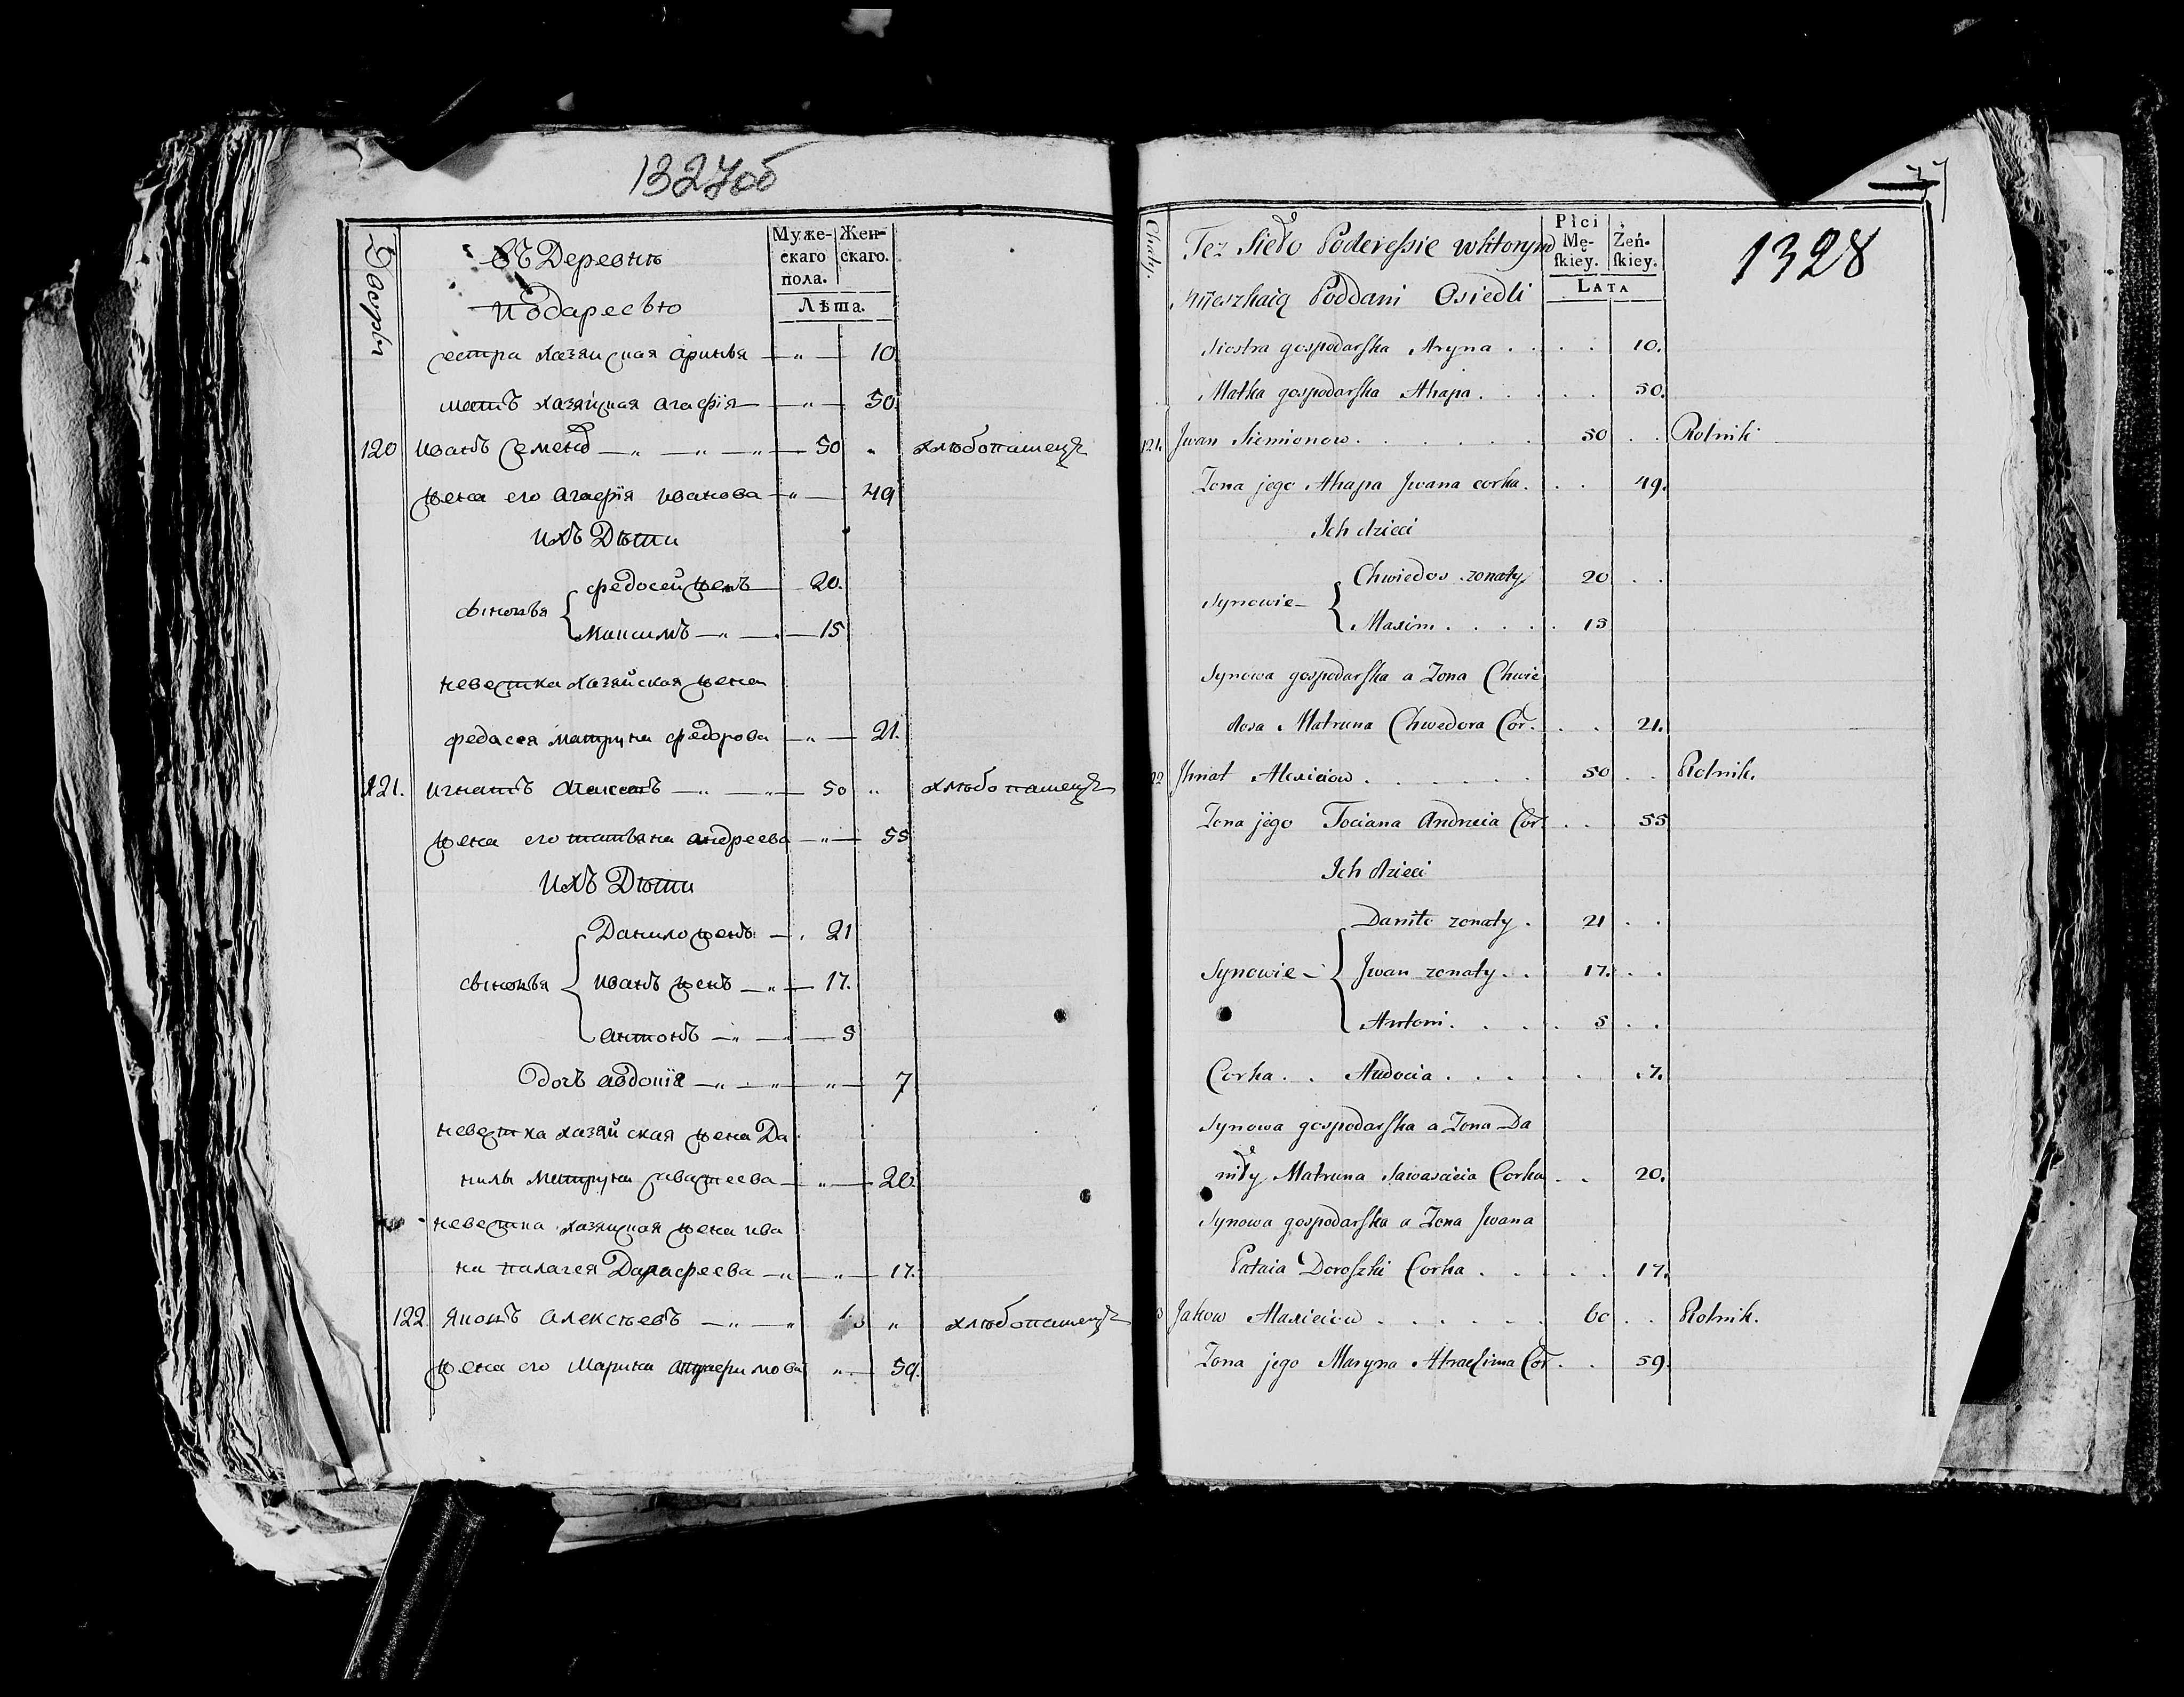 1327об
Дворы
Въ Деревни
Подаресью
Муже-
скаго
пола.
Жен-
скаго.
Лѣта.
сестра хазяиская аринья — „ — 10
мать хазяиская агафія — „ — 50
120 иванъ семенов — „ — „ — „ — 50 „ хлѣбопашецъ
жена его агафія иванова — „ — 49
ихъ Дѣти
сыновья { федосей жен — 20.
максимъ — „ — 15
невестка хазяйская жена
федасея матруна федорова — „ — 21.
121. игнатъ — „ — „ — 50 „ хлѣбопашецъ
жена его татьяна андреева — „ — 55
ихъ Дѣти
сыновья { Данило жен — 21
иванъ жен — „ — 17.
антонъ — „ — 5
дочъ авдоція — „ — „ — „ — 7
невестка хазяй ская жена Да
нилы матруна савастеева — „ — 20.
невестка хазяиская жена ива
на палагея Дарафеева — „ — „ — 17.
122. Яковъ алексѣевъ — „ — „ „ хлѣбопашецъ
жена его марина — „ — 59.
1328
Chaty.
Tez Sieło Poderessie wktorym
Mieszkaią Poddani Osiedli
Płci
Mę-
skiey.
Żeń-
skiey.
LATA
Siostra gospodarska Aryna . . . . 10.
Matka gospodarska Ahapa . . . . . 50.
121. Jwan Siemionow . . . . . . 50 . . Rolnik
Zona jego Ahapa Jwana corka . . . 49.
Ich dzieci
Synowie — { Chwiedos zonaty 20 . .
Maxim . . . . . 15
Synowa gospodarska a Zona Chwie
dosa Matruna Chwedora Cor. . . 21.
22 Jhnat Alexieiow . . . . . . 50 . . Rolnik.
Zona jego Tociana Andrieia Cor. . . 55
Ich dzieci
Synowie — { Daniło zonaty . 21 . .
Jwan zonaty . . 17. . .
Antoni . . . . . 5 . .
Corka . . Audocia . . . . . . 7.
Synowa gospodarska a Zona Da
niły Matruna Sawascieia Corka . . 20.
Synowa gospodarska a Zona Jwana
Pałaia Doroszki Corka . . . . . 17.
3 Jakow Alexieiow . . . . . . 60 . . Rolnik.
Zona jego Maryna Cor. . . 59.